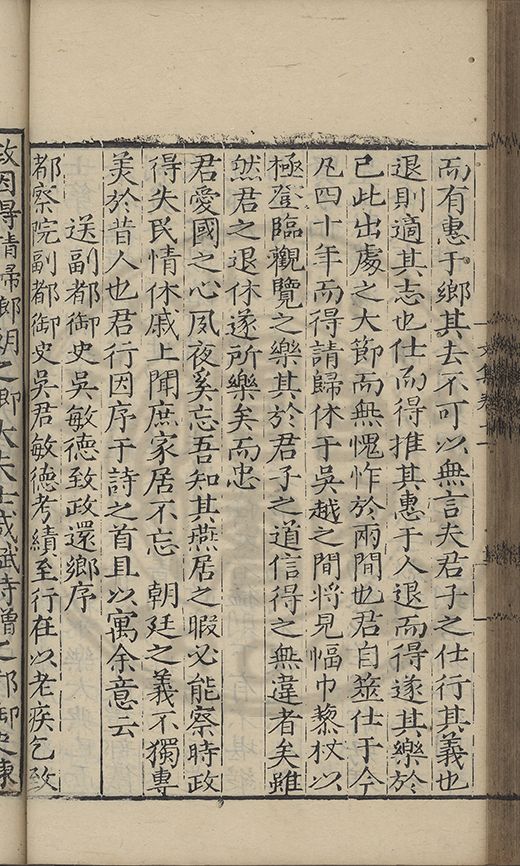 而有惠于鄉其去不可以無言夫君子之仕行其義也
退則適其志也仕而得推其惠于人退而得遂其樂於
己此出處之大節而無愧怍於兩間也君自筮仕于今
凡四十年而得請歸休于吳越之間將見幅巾藜杖以
極登臨觀覽之樂其於君子之道信得之無違者矣雖
然君之退休遂所樂矣而忠
君愛國之心夙夜奚忘吾知其燕居之暇必能察時政
得失民情休戚上聞庶家居不忘 朝廷之義不獨專
美於昔人也君行因序于詩之首且以寓余意云
送副都御史吳敏德致政還鄉序
都察院副都御史吳君敏德考績至行在以老疾乞致